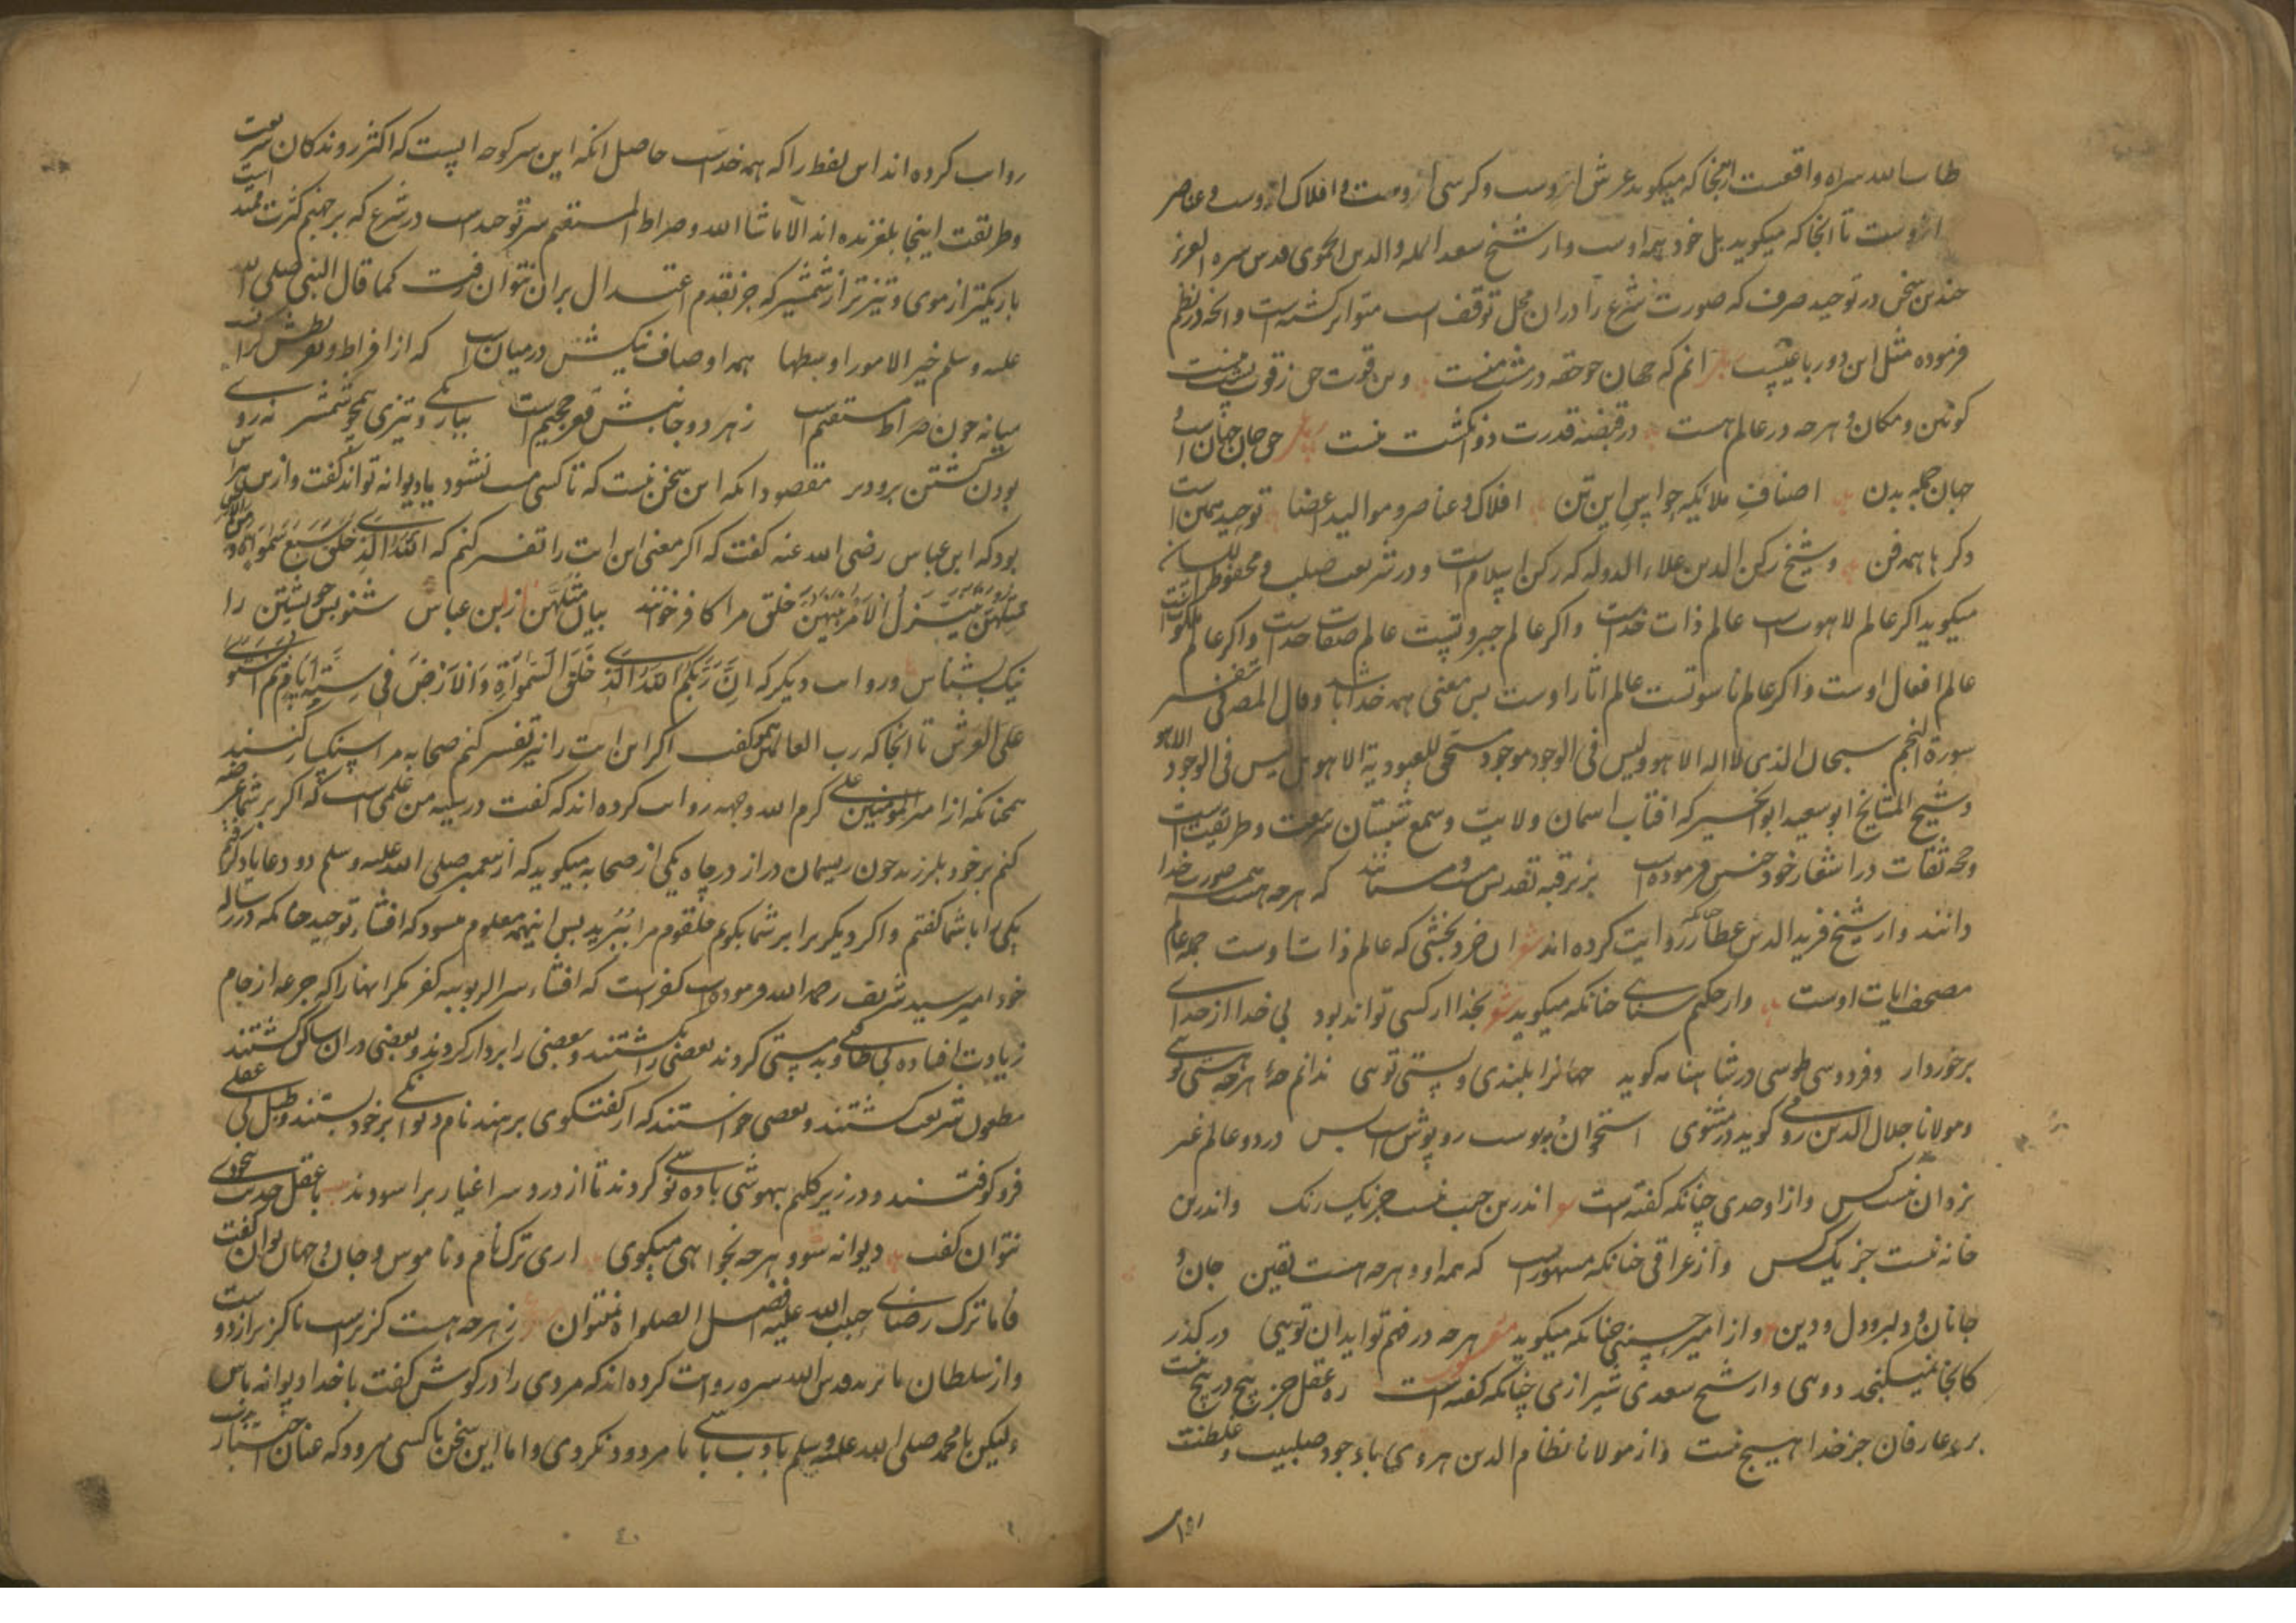 طاب الله سراه واقعست ازنجا که میکوید عرش ازوست و کرسی ازوست و افلاک ازوست و عناصر
ازوست تا انجا که میکوید بل خود همه اوست و از شیخ سعد المله والدین الحموی قدس سره العزیز
چندین سخن در توحید صرف که صورت شرع را دران محل توقف است متواتر کشته است و انچه در نظم
فرموده مثل این دو رباعیست انم که جهان چو حقه در مشت منست وین قوت حق ز قوت پشت منست
کونین و مکان و هرچه در عالم هست در قبضه قدرت دو انکشت منست حق جان جهان است و
جهان جمله بدن اصناف ملایکه حواس این تن افلاک و عناصر و موالید اعضا توحید همین است
دکرها همه فن و شیخ رکن الدین علاء الدوله که رکن اسلام است و در شریعت صلب و محفوظ
میکوید اکر عالم لاهوتست عالم ذات خداست و اکر عالم جبروتست عالم صفات خداست و اکر عالم ملکوت است
عالم افعال اوست و اکر عالم ناسوتست عالم اثار اوست پس معنی همه خدا باشد و قال المص فی تفسیر
سورة النجم سبحان الذی لا اله الا هو و لیس فی الوجود موجود مستحق للعبودیة الا هو بل لیس فی الوجود الا هو
و شیخ المشایخ ابو سعید ابو الخیر که افتاب اسمان ولایت و شمع شبستان شریعت و طریقت است
و حجه ثقات در اشعار خود چنین فرموده است بزیر قبه تقدیس مست و مستانند که هرچه هست همه صورت خدا
دانند و از شیخ فرید الدین عطار روایت کرده اند ان خرد بخشی که عالم ذات اوست جمله عالم
مصحف ایات اوست و از حکیم سنایی چنانکه میکوید بخدا ار کسی تواند بود بی خدا از خدای
برخوردار و فردوسی طوسی در شاهنامه کوید جهانرا بلندی و پستی تویی ندانم چه هرچه هستی تویی
و مولانا جلال الدین رومی کوید در مثنوی استخوان و پوست روپوش است و بس در دو عالم غیر
یزدان نیست کس و از اوحدی چنانکه کفته است اندرین جیب نیست جز یک رنک واندرین
خانه نیست جز یک کس و از عراقی چنانکه مشهورست که همه اوو هرچه هست یقین جان و
جانان و دلبر و دل و دین و از امیر حسینی چنانکه میکوید هرچه در فهم تو اید ان تویی در کذر
کانجا نمیکنجد دویی و از شیخ سعدی شیرازی چنانکه کفته است ره عقل جز پیچ در پیچ نیست
بر عارفان جز خدا هیچ نیست و از مولانا نظام الدین هروی با وجود صلبیت و غلظت
روایت کرده اند این لفظ را که همه خداست حاصل انکه این سر کوچه ایست که اکثر روندکان شریعت
و طریقت اینجا بلغزیده اند الا ما شا الله و صراط المستقیم سر توحید است در شرع که بر جهنم کثرت ممتد است
باریکتر از موی و تیزتر از شمشیر که جز بقدم اعتدال بران نتوان رفت کما قال النبی صلی الله
علیه و سلم خیر الامور اوسطها همه اوصاف نیکش در میان است که از افراط و تفریطش کران است
میانه چون صراط مستقیم است ز هر دو جانبش قعر جحیم است بباریکی و تیزی همچو شمشیر نه روی
بودن کشتن برو دیر مقصود انکه این سخن نیست که تا کسی مست نشود یا دیوانه تواند کفت و ازین
بود که ابن عباس رضی الله عنه کفت که اکر معنی این ایت را تفسیر کنم که الله الذی خلق سبع سموات و من الارض
مثلهن یتنزل الامر بینهن خلق مرا کافر خوانند بیان مثلهن از ابن عباس شنو پس خویشتن را
نیک بشناس و روایت دیکر که ان ربکم الله الذی خلق السموات والارض فی ستة ایام ثم استوی
علی العرش تا انجا که رب العالمین همو کفت اکر این ایت را نیز تفسیر کنم صحابه مرا سنکسار کنند
همچنانکه از امیر المؤمنین علی کرم الله وجهه روایت کرده اند که کفت در سینه من علمی است که اکر بر شما عرضه
کنم بر خود بلرزید چون ریسمان دراز در چاه یکی از صحابه میکوید که از پیغمبر صلی الله علیه و سلم دو دعا یاد کرفتم
یکی را با شما کفتم و اکر دیکر برابر شما بکویم حلقوم مرا ببرید پس اینهمه معلوم میشود که افشاء توحید چنانکه در رساله
خود امیر سید شریف رحمه الله فرموده است کفر است که افشاء سر الربوبیه کفر مکر انهارا که جرعه از جام
زیادت افتاده بی طاقتی و بدمستی کردند بعضی را کشتند و بعضی را بردار کردند و بعضی دران سالک کشتند
مطعون شریعت کشتند و بعضی خواستند که از کفتکوی برهند نام دیوانکی بر خود بستند و طبل بی عقلی
فرو کوفتند و در زیر کلیم بیهوشی باده نوشی کردند تا از درد سر اغیار براسودند با عقل حدیث بیخودی
نتوان کفت دیوانه شو و هرچه بخواهی میکوی اری ترک نام و ناموس و جان و جهان توان کفت
فاما ترک رضای حبیب الله علیه افضل الصلواة نتوان ز هرچه هست کزیر است ناکزیر از دوست
و از سلطان بایزید قدس الله سره روایت کرده اند که مردی را در کوش کفت با خدا دیوانه باش
ولیکن با محمد صلی الله علیه و سلم با ادب باش تا مردود نکردی و اما این سخن با کسی میرود که عنان اختیار